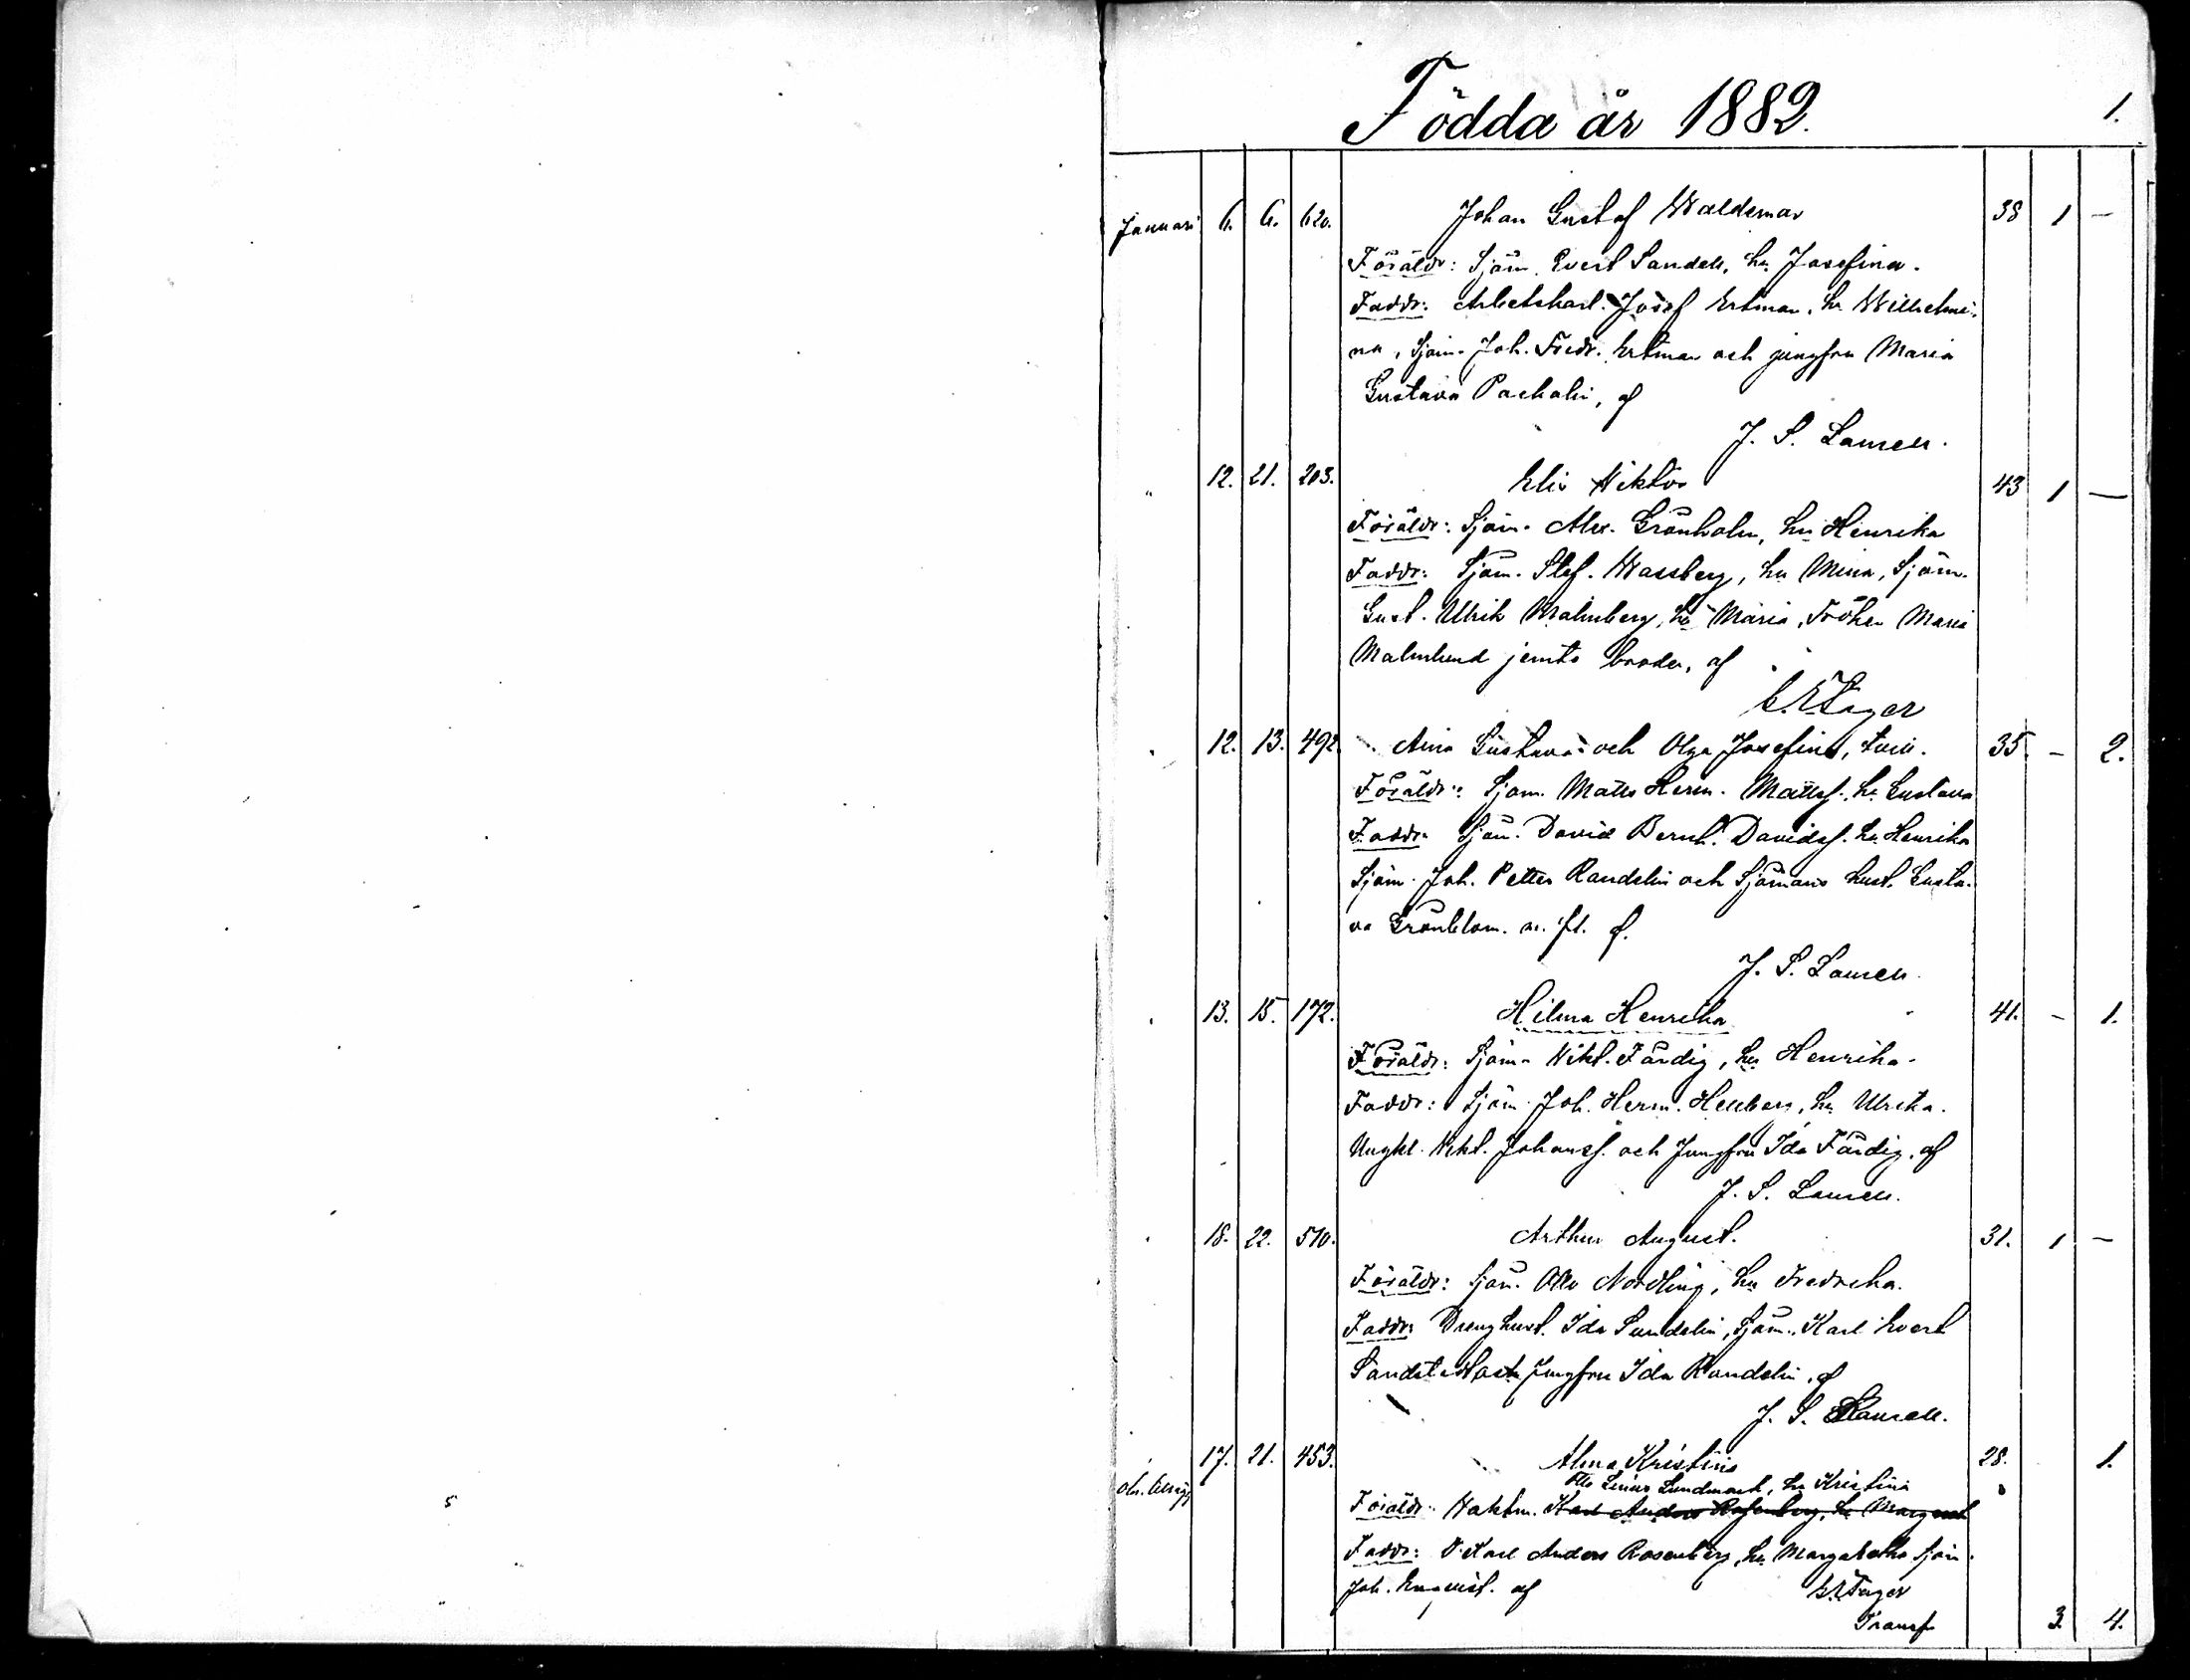 Födda år 1882.
1.
Januari 6. 6. 620. Johan Gustaf Waldemar 38 1 —
Föräldr: Sjöm. Evert Sandell, hu Josefina.
Faddr: Arbetskarl. Josef Ertman, hu Wilhelmi-
na, Sjöm. Joh. Fredr. Ertman och jungfru Maria
Gustava Pachalin, af
J. S. Laurell.
" 12. 21. 203. Elis Viktor 43 1 —
Föräldr: Sjöm. Alex. Grönholm, hu Henrika
Faddr: Sjöm. Stef. Wassberg, hu Mina, Sjöm.
Gust. Ulrik Malmberg, hu Maria, Fröken Maria
Malmlund jemte broder, af
12. 13. 492 Aina Gustava och Olga Josefina, tvill. 35. – 2.
Föräldr: Sjöm. Matts Herm. Mattss. hu Gustava
Faddr: Sjöm. David Bernh. Davidss. hu Henrika
Sjöm. Joh. Petter Randelin och Sjömans hust. Gusta-
va Grönblom. m. fl. af.
J. S. Laurell.
13. 15. 172. Hilma Henrika 41. – 1.
Föräldr: Sjöm. Vikt. Färdig, hu Henrika.
Faddr: Sjöm. Joh. Herm. Hellberg, hu Ulrika.
Ungkl. Vikt. Johanss. och Jungfru Ida Färdig. af
J. S. Laurell.
18. 22. 510. Arthur August. 31. 1 —
Föräldr: Sjöm. Otto Nordling, hu Fredrika.
Faddr: Dränghust. Ida Sundelin, Sjöm. Karl Evert
Jungfru Ida Randelin. af
J. S. Laurell.
17. 21. 453. Alma Kristina 28. 1.
Otto Linus Lundmark, hu Kristina
Föräldr: Vaktm. Karl Anders Rosenberg, hu Margaret
Faddr: Karl Anders Rosenberg, hu Margaretha Sjöm.
Joh. Enqvist. af
Transp 3. 4.